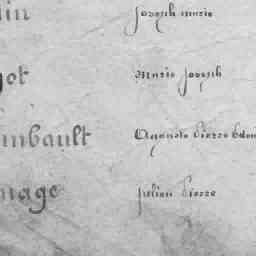 in Joseph marie
get Marie Joseph
mbault Auguste Pierre Edm
nage Julien Pierre